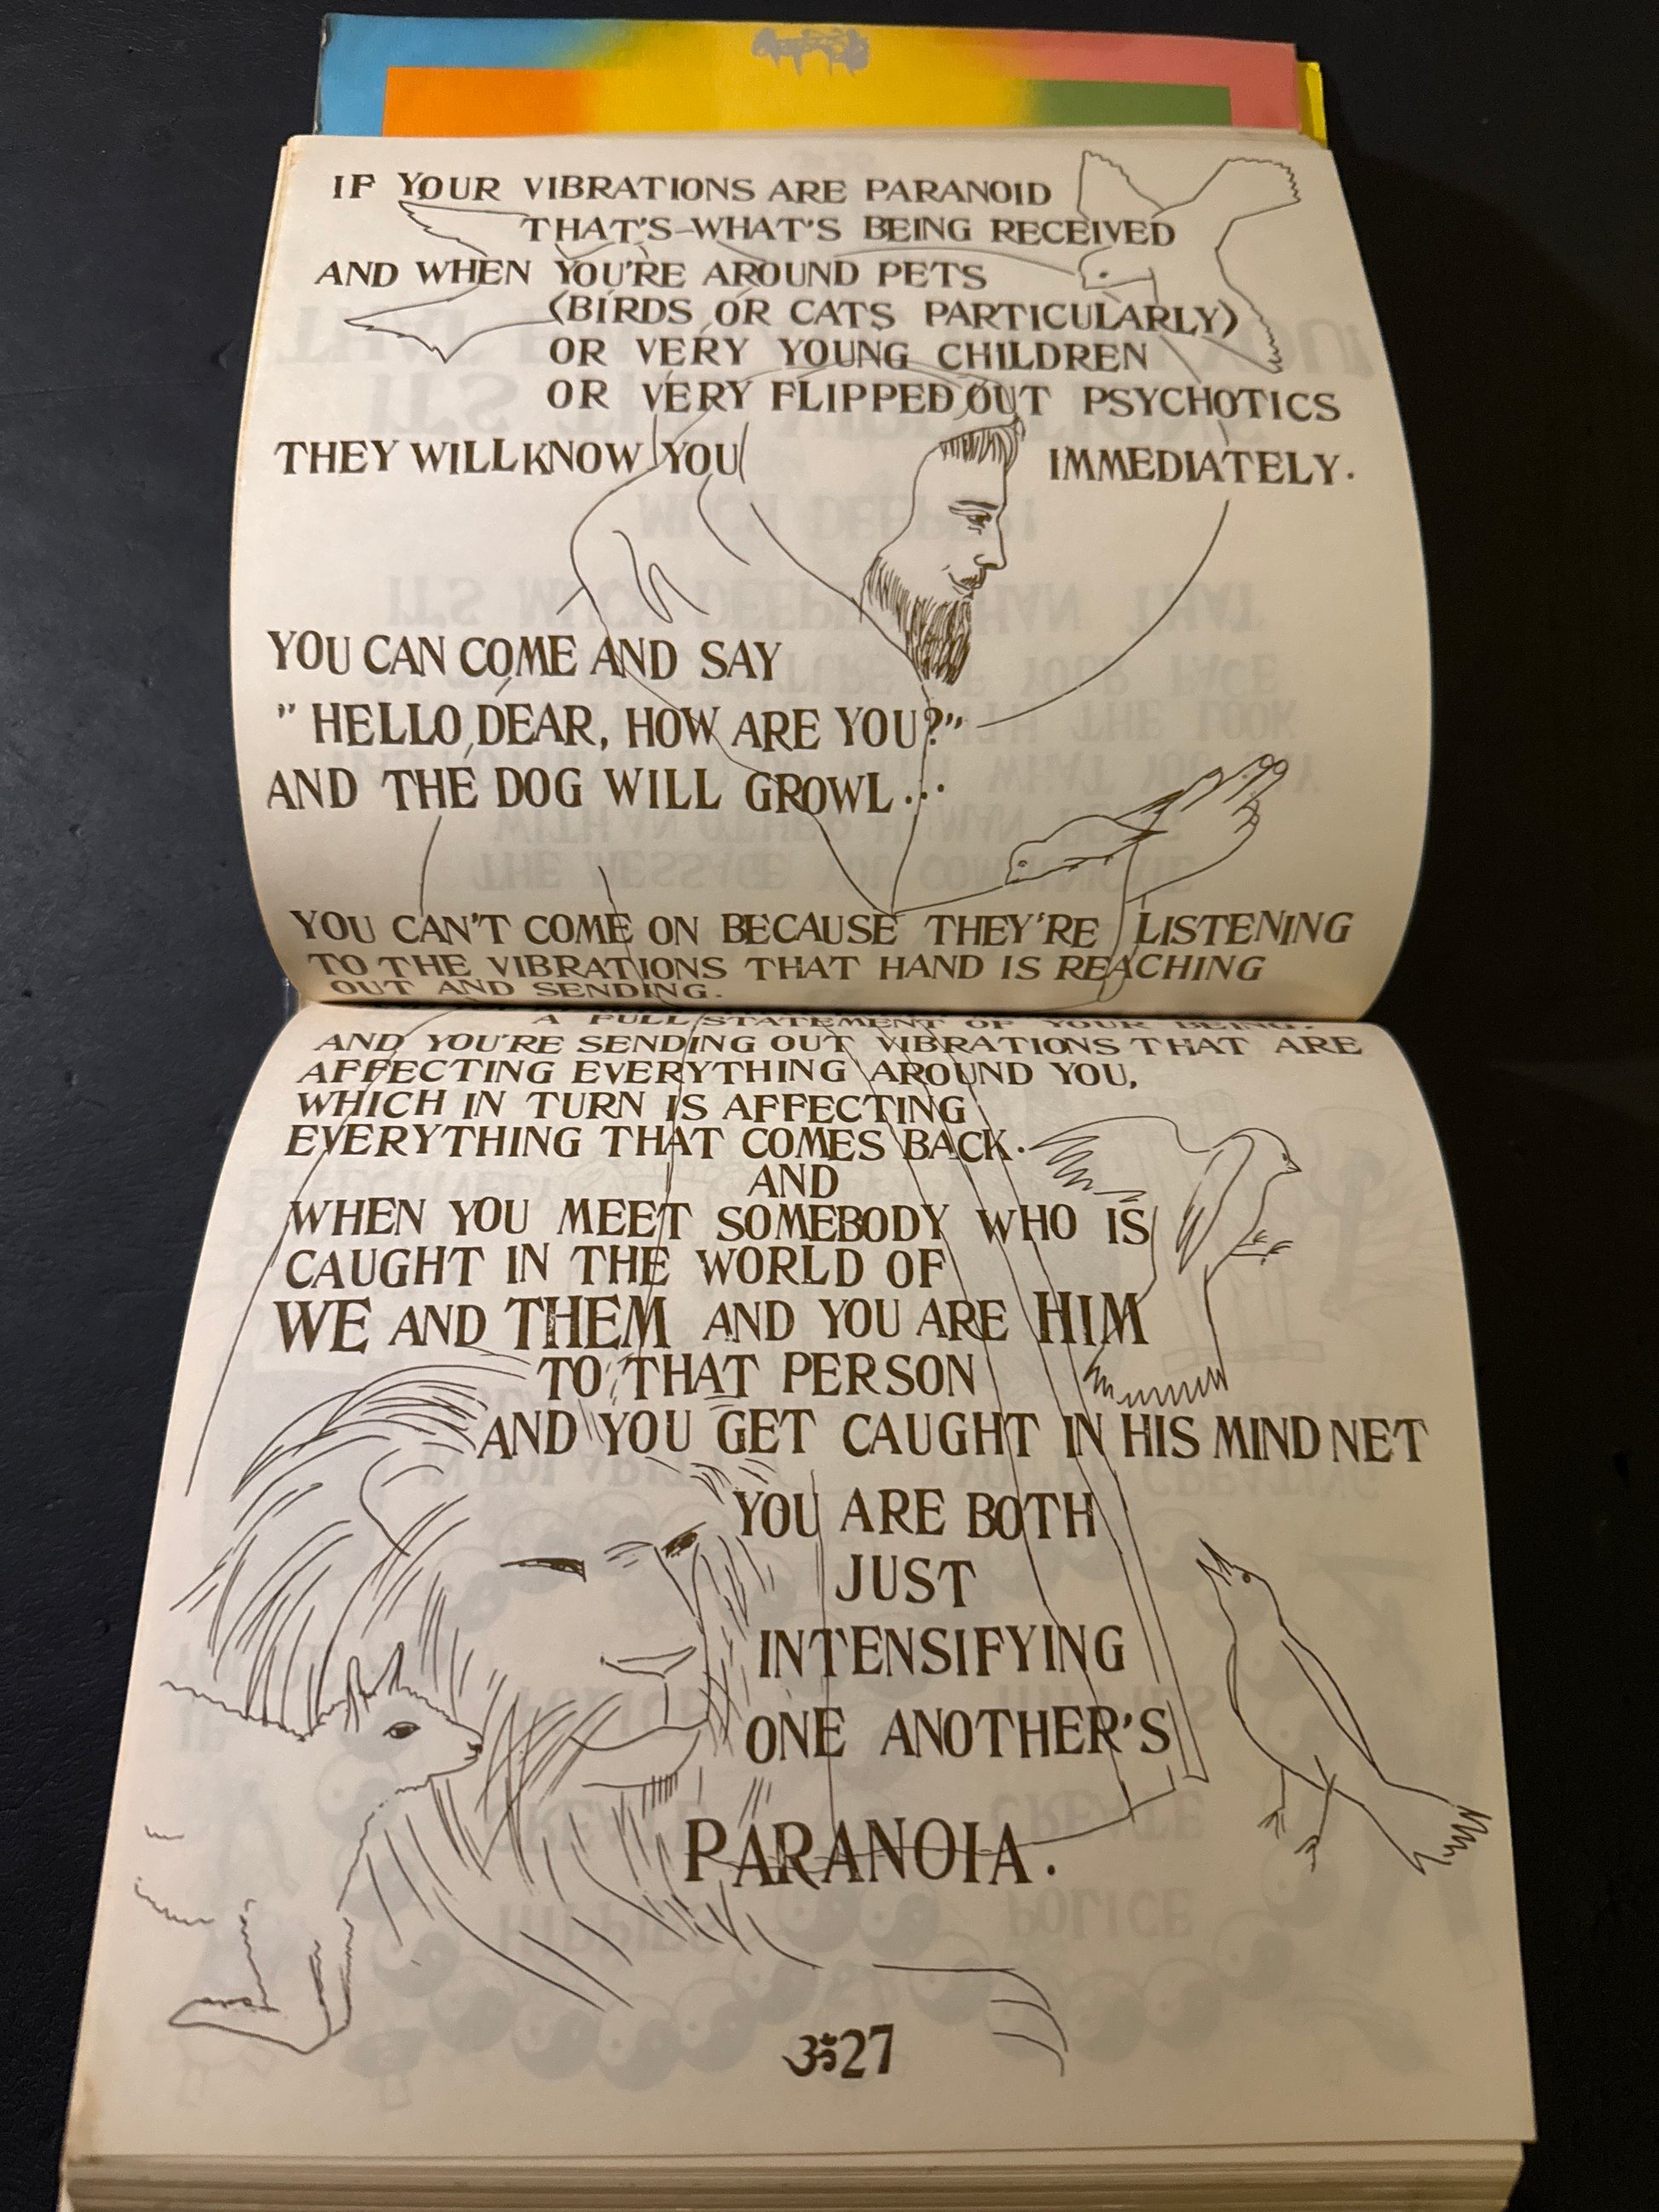 IF YOUR VIBRATIONS ARE PARANOID
THAT'S WHAT'S BEING RECEIVED
AND WHEN YOU'RE AROUND PETS
(BIRDS OR CATS PARTICULARLY)
OR VERY YOUNG CHILDREN
OR VERY FLIPPED OUT PSYCHOTICS
THEY WILL KNOW YOU IMMEDIATELY.
YOU CAN COME AND SAY
"HELLO DEAR, HOW ARE YOU?"
AND THE DOG WILL GROWL...
YOU CAN'T COME ON BECAUSE THEY'RE LISTENING
TO THE VIBRATIONS THAT HAND IS REACHING
OUT AND SENDING.
A FULL STATEMENT OF YOUR BEING.
AND YOU'RE SENDING OUT VIBRATIONS THAT ARE
AFFECTING EVERYTHING AROUND YOU,
WHICH IN TURN IS AFFECTING
EVERYTHING THAT COMES BACK.
AND
WHEN YOU MEET SOMEBODY WHO IS
CAUGHT IN THE WORLD OF
WE AND THEM AND YOU ARE HIM
TO THAT PERSON
AND YOU GET CAUGHT IN HIS MIND NET
YOU ARE BOTH
JUST
INTENSIFYING
ONE ANOTHER'S
PARANOIA.
ॐ27